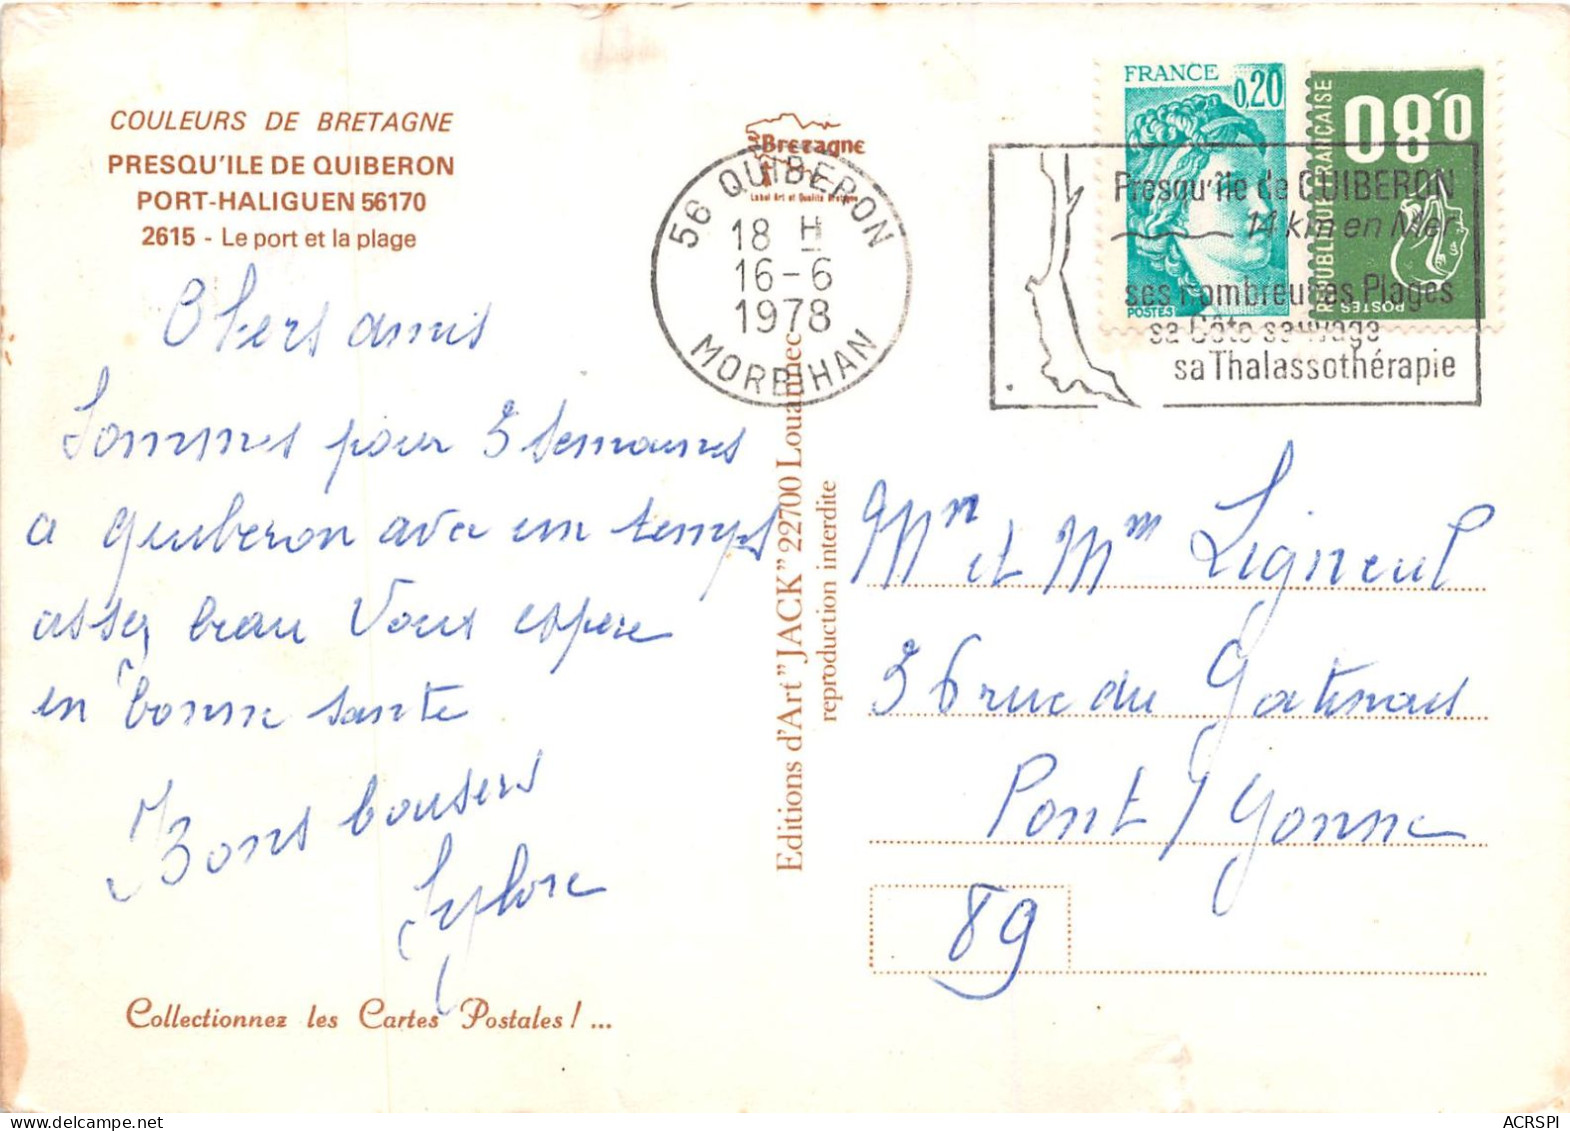 COULEURS DE BRETAGNE
PRESQU'ILE DE QUIBERON
PORT-HALIGUEN 56170
2615 - Le port et la plage
Chers amis
Sommes pour 3 semaines
a Quiberon avec un temps
assez beau Vous espere
en bonne sante
Bons baisers
Collectionnez les Cartes Postales ! ...
Bretagne
Label Art et Qualité Bretagne
56 QUIBERON
18 H
16-6
1978
MORBIHAN
Editions d'Art "JACK" 22700 Louannec
reproduction interdite
FRANCE
0,20
POSTES
0,80
REPUBLIQUE FRANÇAISE
POSTES
Presqu'île de QUIBERON
14 km en Mer
ses nombreuses Plages
sa Côte sauvage
sa Thalassothérapie
Mr et Mme Ligneul
36 rue du Gatinais
Pont s/ Yonne
89
ACRSPI